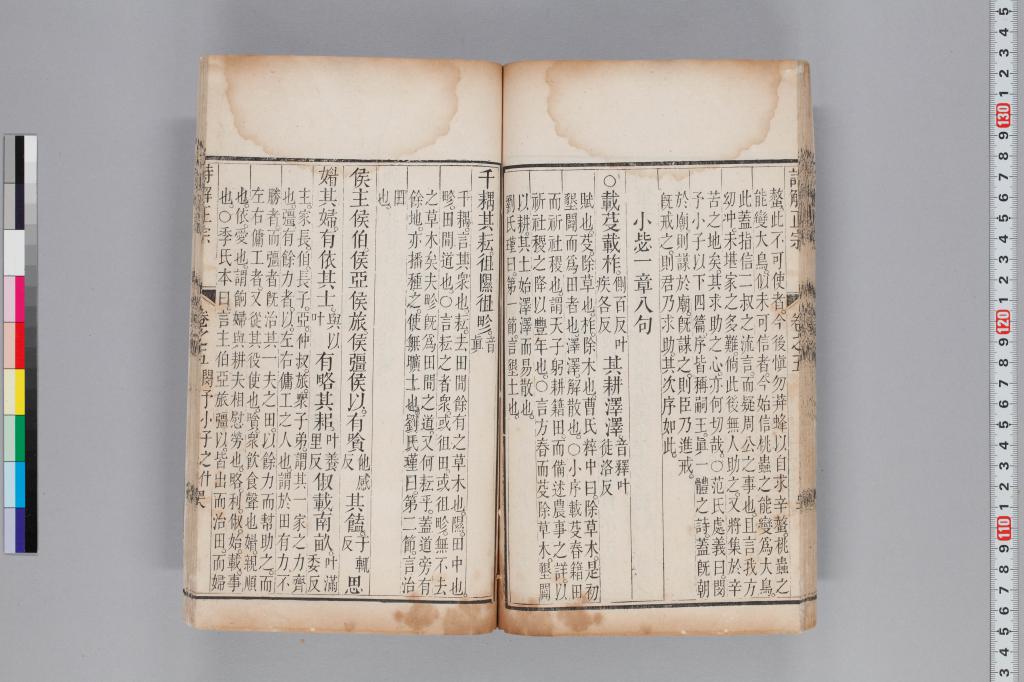 螫此不可使者今後愼勿荓蜂以自求辛螫桃蟲之
能變大鳥似未可信者今始信桃蟲之能變爲大鳥
此蓋指信二叔之流言而疑周公之事也且言我方
幼冲未堪家之多難倘此後無人助之又將集於辛
苦之地矣其求助之心亦何切哉○范氏處義曰閔
予小子以下四篇序皆稱嗣王眞一體之詩蓋旣朝
於廟則謀於廟旣謀之則臣乃進戒
旣戒之則君乃求助其次序如此
小毖一章八句
○載芟載柞側百反叶疾各反其耕澤澤音釋叶徒洛反
賦也芟除草也柞除木也曹氏粹中曰除草木是初
墾闢而爲田者也澤澤解散也○小序載芟春籍田
而祈社稷也謂天子躬耕籍田而備述農事之詳以
祈社稷之降以豐年也○言方春而芟除草木墾闢
以耕其土始澤澤而易散也
劉氏瑾曰第一節言墾土也
千耦其耘徂隰徂畛音眞
千耦言其衆也耘去田間餘有之草木也隰田中也
畛田間道也○言耘之者衆或徂田或徂畛無不去
之草木矣夫畛旣爲田間之道又何耘乎蓋道旁有
餘地亦播種之使無曠土也劉氏瑾曰第二節言治
田
也
侯主侯伯侯亞侯旅侯彊侯以有嗿他感反其饁于輒反思
媚其婦有依其士叶與以有略其耜叶養里反俶載南畝叶滿委反
主家長伯長子亞仲叔旅衆子弟謂其一家之力齊
也彊有餘力者以左右傭工之人也謂於田有力不
勝者而彊者旣治其一夫之田以餘力而幫助之而
左右傭工者又從其役使也嗿衆飲食聲也媚親順
也依愛也謂餉婦與耕夫相慰勞也略利俶始載事
也○季氏本曰言主伯亞旅彊以皆出而治田而婦
詩解正宗
卷之五
閔予小子之什